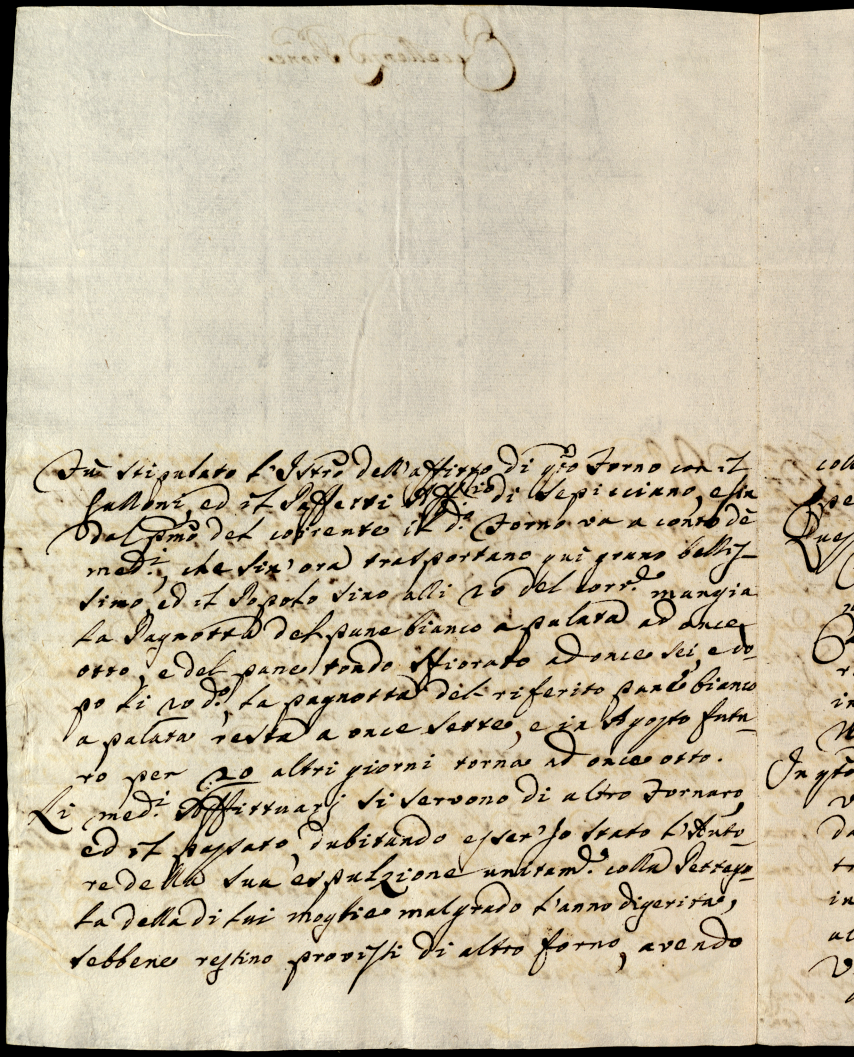 Fù stipulato l'Istro dell'affitto di qsto Forno con il
Galloni, ed il Pafferri Affrio di Sepicciano, e sin
dal pmo del corrente il do Forno va a conto de
medi, che sin'ora trasportano qui grano bellis-
simo, ed il Popolo sino alli 20 del corre mangia
la Pagnotta del pane bianco a palata ad once
otto, e del pane tondo sfiorato ad once sei, e do-
po li 20 do la pagnotta del riferito pane bianco
a palata resta a once sette, e in Agosto futu-
ro per 20 altri giorni torna ad once otto.
Li medi Affittuarj si servono di altro Fornaro,
ed il passato, dubitando esser Io stato l'Auto-
re della sua espulzione unitame colla Pettego-
la della di lui moglie malgrado l'anno digerita,
sebbene restino provisti di altro forno, avendo